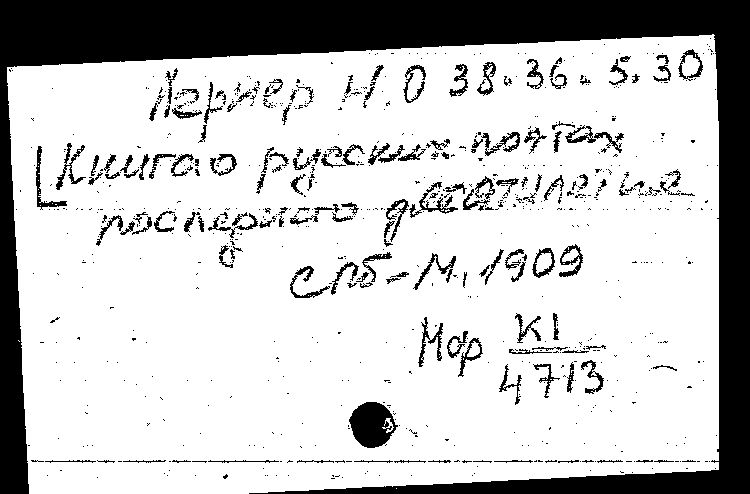 Лернер Н.О 38.36.5.30
Книга о русских поэтах
последнего десятилетия
СПб-М, 1909
Мф К1
4713